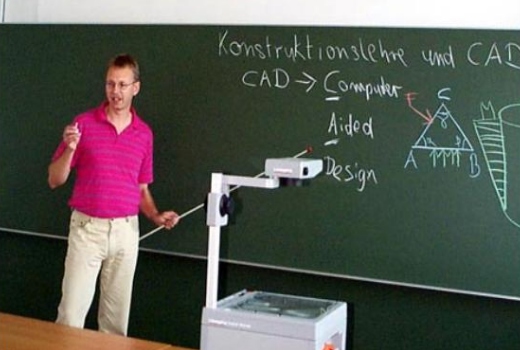 Konstruktionslehre und CAD
CAD → Computer
Aided
Design
F
C
A
B
M